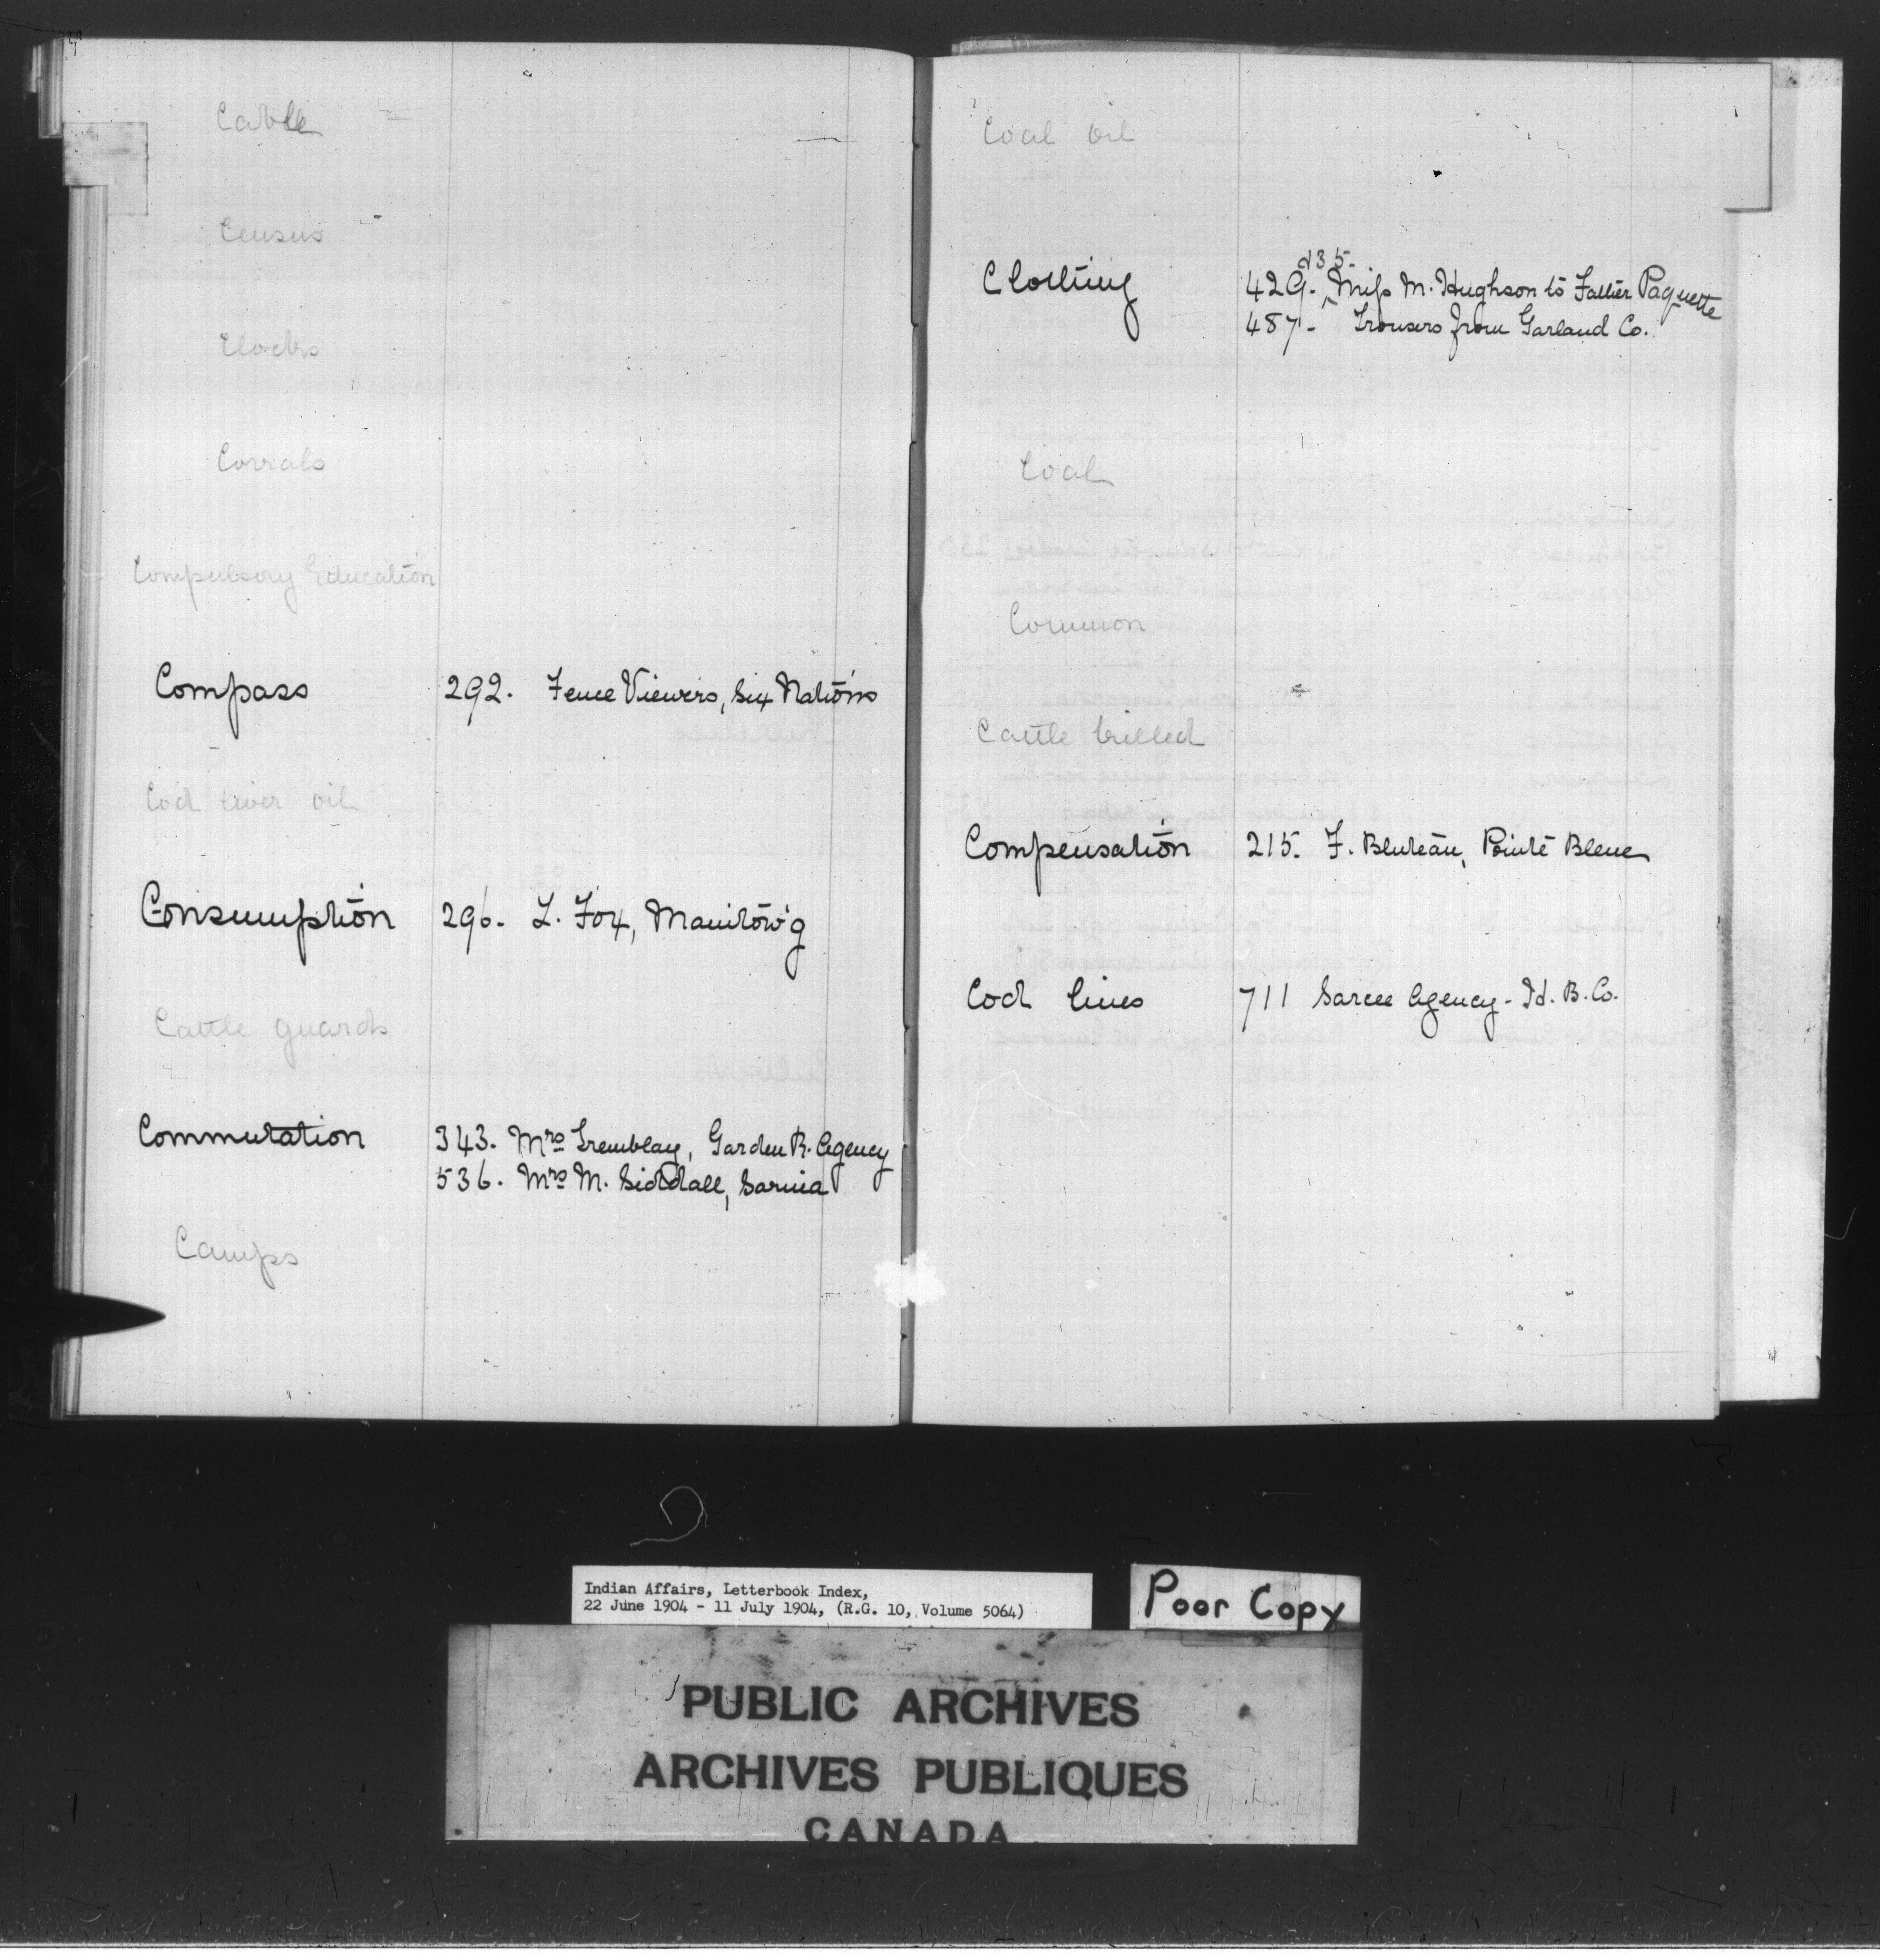 Cable
Census
Clocks
Corrals
Compulsory Education
Compass 292. Fence Viewers, Six Nations
Cod liver oil
Consumption 296. L. Fox, Manitow'g
Cattle guards
Commutation 343. Mrs Tremblay, Garden R. Agency
536. Mrs M. Siddall, Sarnia
Camps
Coal oil
435-
Clothing 429. Miss M. Hughson to Father Paquette
487- Trousers from Garland Co.
Coal
Common
Cattle killed
Compensation 215. F. Bluteau, Pointe Bleue
Cod lines 711 Sarcee Agency - Id. B. Co.
Indian Affairs, Letterbook Index,
22 June 1904 - 11 July 1904, (R.G. 10, Volume 5064)
Poor Copy
PUBLIC ARCHIVES
ARCHIVES PUBLIQUES
CANADA